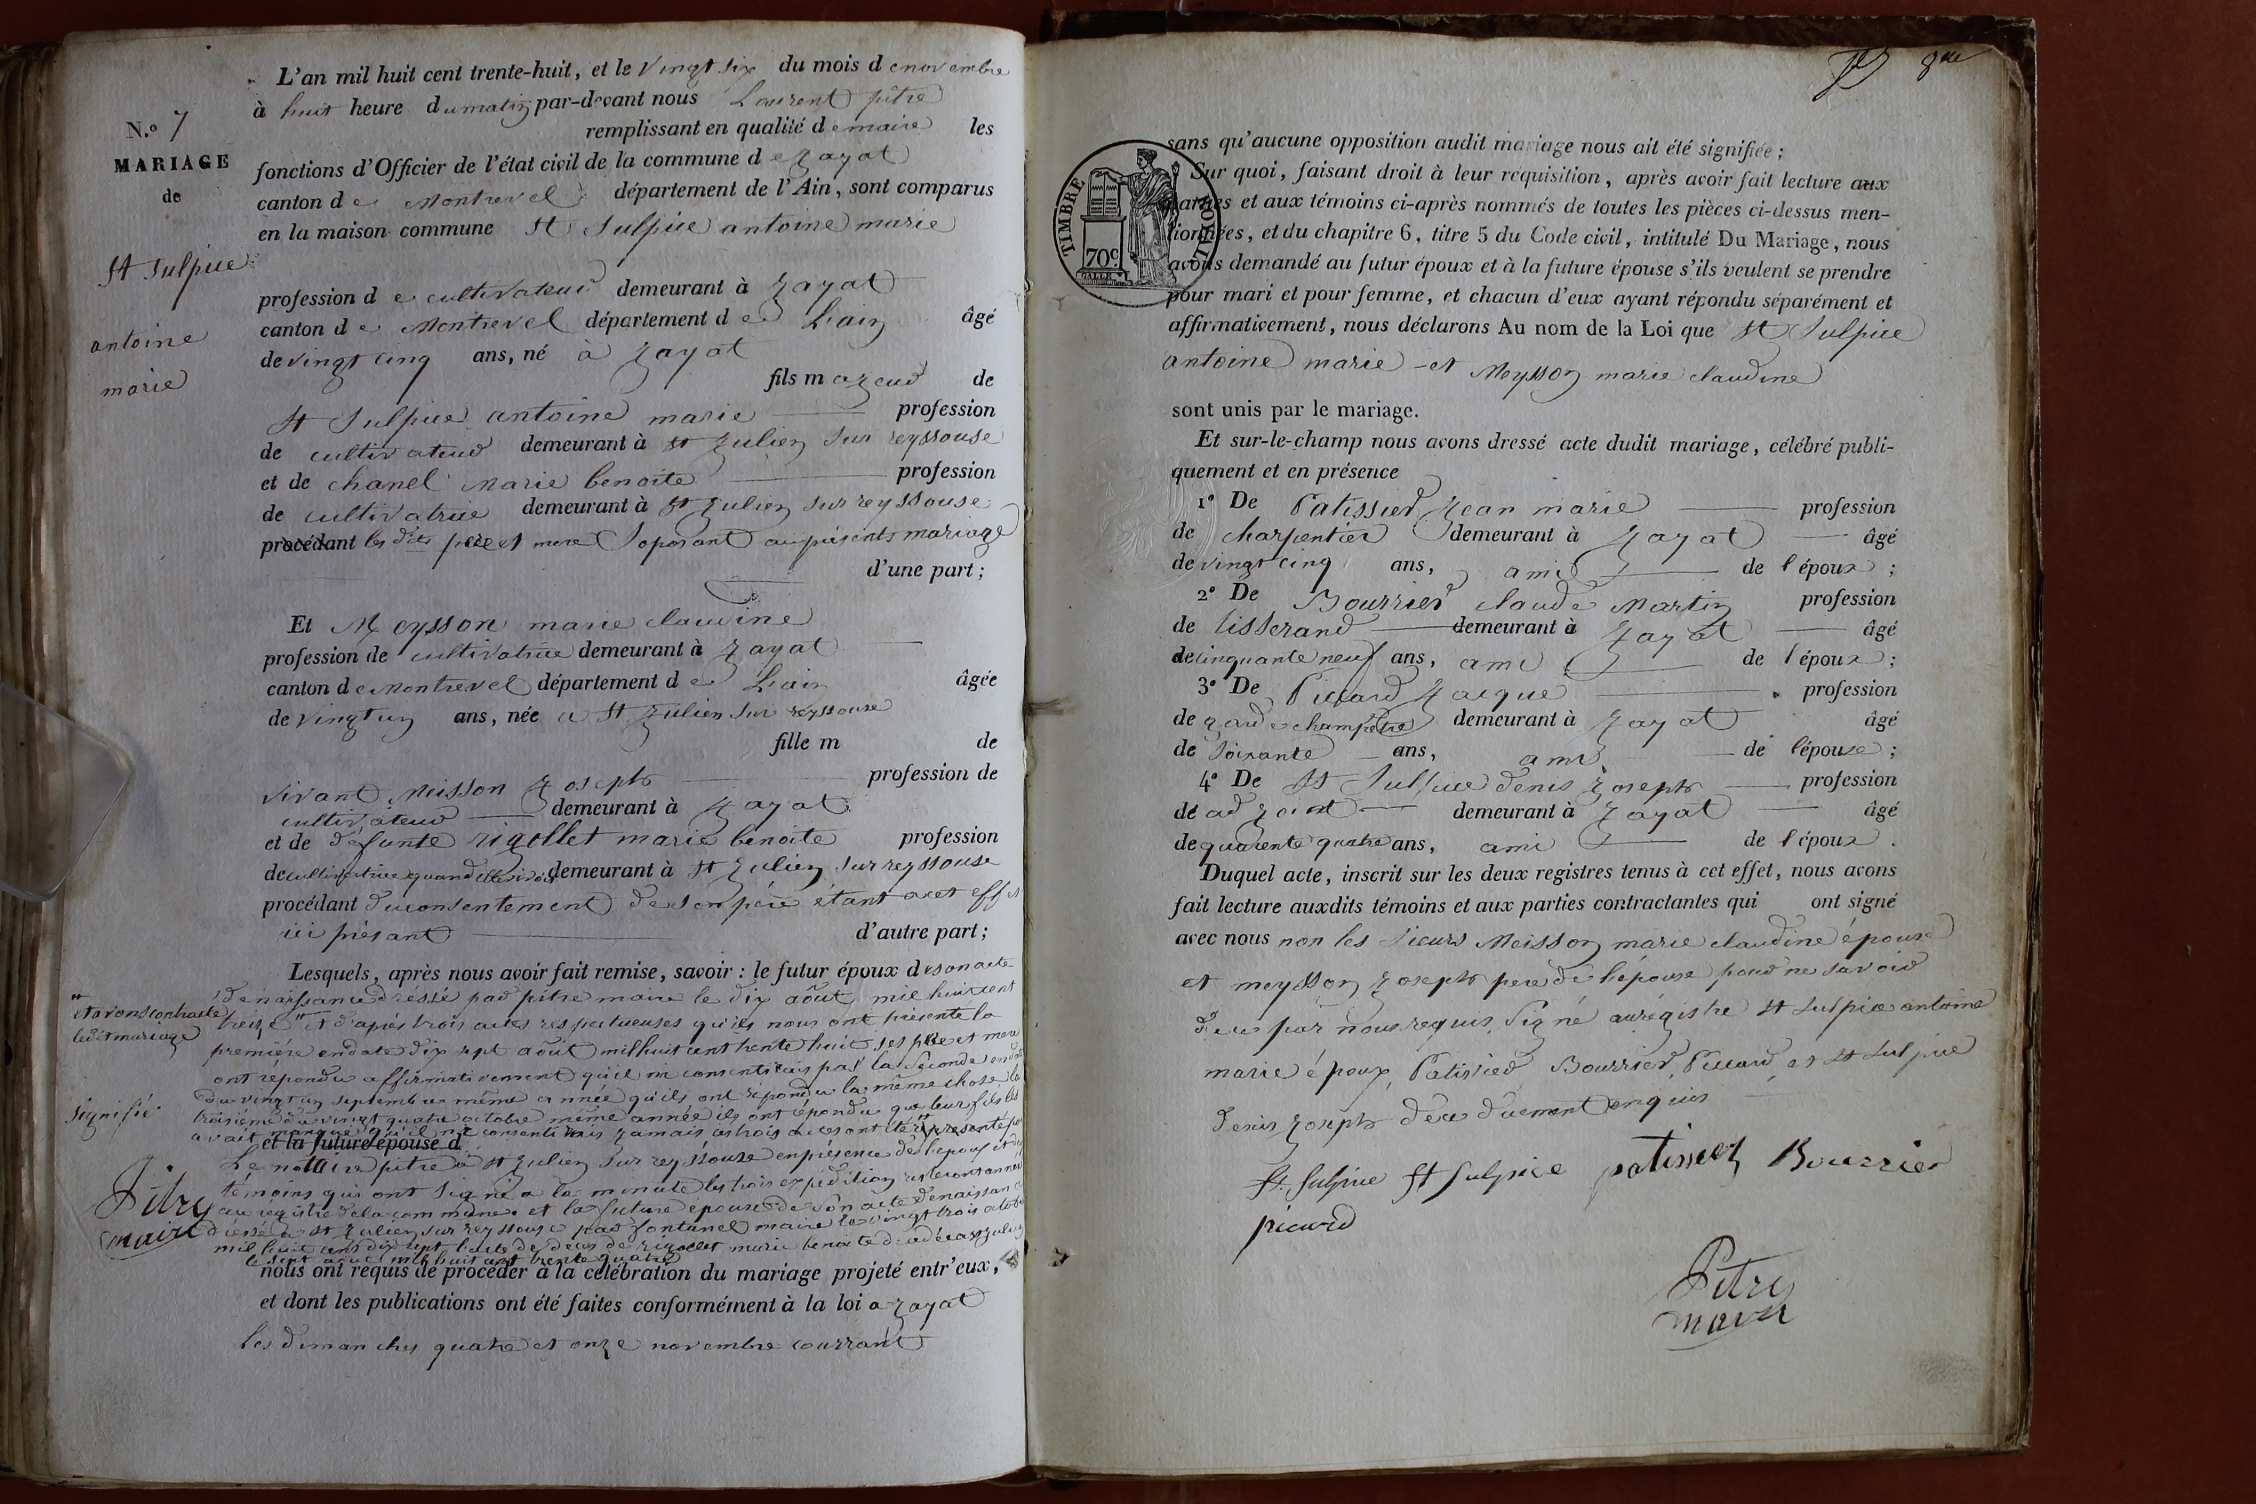 L'an mil huit cent trente-huit, et le vingt six du mois d e novembre
à huit heure du matin par-devant nous Laurent pitre
remplissant en qualité de maire les
N.° 7
MARIAGE
de
St Sulpice
antoine
marie
fonctions d'Officier de l'état civil de la commune de Jayat
canton de Montrevel département de l'Ain, sont comparus
en la maison commune St Sulpice antoine marie
profession de cultivateur demeurant à Jayat
canton de Montrevel département de L'ain âgé
de vingt cinq ans, né à Jayat
fils majeur de
St Sulpice antoine marie profession
de cultivateur demeurant à St Julien sur reyssouse
et de chanel Marie benoite profession
de cultivatrice demeurant à St Julien sur reyssouse
procédant les dits père et mere s'oposant au présents mariage
d'une part;
Et Meysson marie claudine
profession de cultivatrice demeurant à Jayat
canton de Montrevel département de L'ain âgée
de vingt un ans, née a St Julien sur reyssouse
fille m de
vivant Meisson Joseph profession de
cultivateur demeurant à Jayat
et de défunte rigollet marie benoite profession
de cultivatrice quand elle vivoit demeurant à St Julien sur reyssouse
procédant du consentement de son père étant acet effet
ici présant d'autre part;
Lesquels, après nous avoir fait remise, savoir: le futur époux de son acte
de naissance dréssé par pitre maire le dix août mil huit cent
et avons contracté
ledit mariage
treize et d'après trois actes respectueuses qu'ils nous ont présenté la
première en date dix sept août mil huit cent trente huit ses père et mere
ont répondu affirmativement qu'il ne consentirais pas la seconde en date
du vingt un septembre même année qu'ils ont répondu la même chose la
signifié
troisième du vingt quatre octobre même année ils ont répondu que leur fils les
avait manqué qu'il ne consentirais jamais les trois actes ont été représenté par
et la future épouse d
Le notaire pitre à St Julien sur reyssouse en présence de l'époux et des
témoins qui ont signé a la minute les trois expédition resteront annexé
Pitre
maire
au registre de la commune et la future épouse de son acte de naissance
dressé a St Julien sur reyssouse par fontanel maire le vingt trois octobre
mil huit cent dix sept l'acte de décès de rigollet marie benoite décédé a St Julien
le sept août mil huit cent trente quatre
nous ont requis de procéder à la célébration du mariage projeté entr'eux,
et dont les publications ont été faites conformément à la loi a Jayat
les dimanches quatre et onze novembre courrant
8me
TIMBRE ROYAL
70c.
sans qu'aucune opposition audit mariage nous ait été signifiée;
Sur quoi, faisant droit à leur réquisition, après avoir fait lecture aux
parties et aux témoins ci-après nommés de toutes les pièces ci-dessus men-
tionnées, et du chapitre 6, titre 5 du Code civil, intitulé Du Mariage, nous
avons demandé au futur époux et à la future épouse s'ils veulent se prendre
pour mari et pour femme, et chacun d'eux ayant répondu séparément et
affirmativement, nous déclarons Au nom de la Loi que St Sulpice
antoine marie et Meysson marie claudine
sont unis par le mariage.
Et sur-le-champ nous avons dressé acte dudit mariage, célébré publi-
quement et en présence
1° De Patissier Jean marie profession
de charpentier demeurant à Jayat âgé
de vingt cinq ans, ami de l'époux;
2° De Bourrier claude Martin profession
de tisserand demeurant à Jayat âgé
de cinquante neuf ans, ami de l'époux;
3° De Piccard Jacque profession
de garde champêtre demeurant à Jayat âgé
de soixante ans, ami de l'épouse;
4° De St Sulpice denis Joseph profession
de adjoint demeurant à Jayat âgé
de quarente quatre ans, ami de l'époux.
Duquel acte, inscrit sur les deux registres tenus à cet effet, nous avons
fait lecture auxdits témoins et aux parties contractantes qui ont signé
avec nous non les sieurs Meisson marie claudine épouse
et meysson Joseph pere de l'épouse pour ne savoir
de ce par nous requis Signé au régistre St Sulpice antoine
marie époux, Patissier Bourrier, Piccard, et St Sulpice
denis Joseph de ce duement enquis
St. Sulpice St Sulpice patissier Bourrier
picard
Pitre
maire